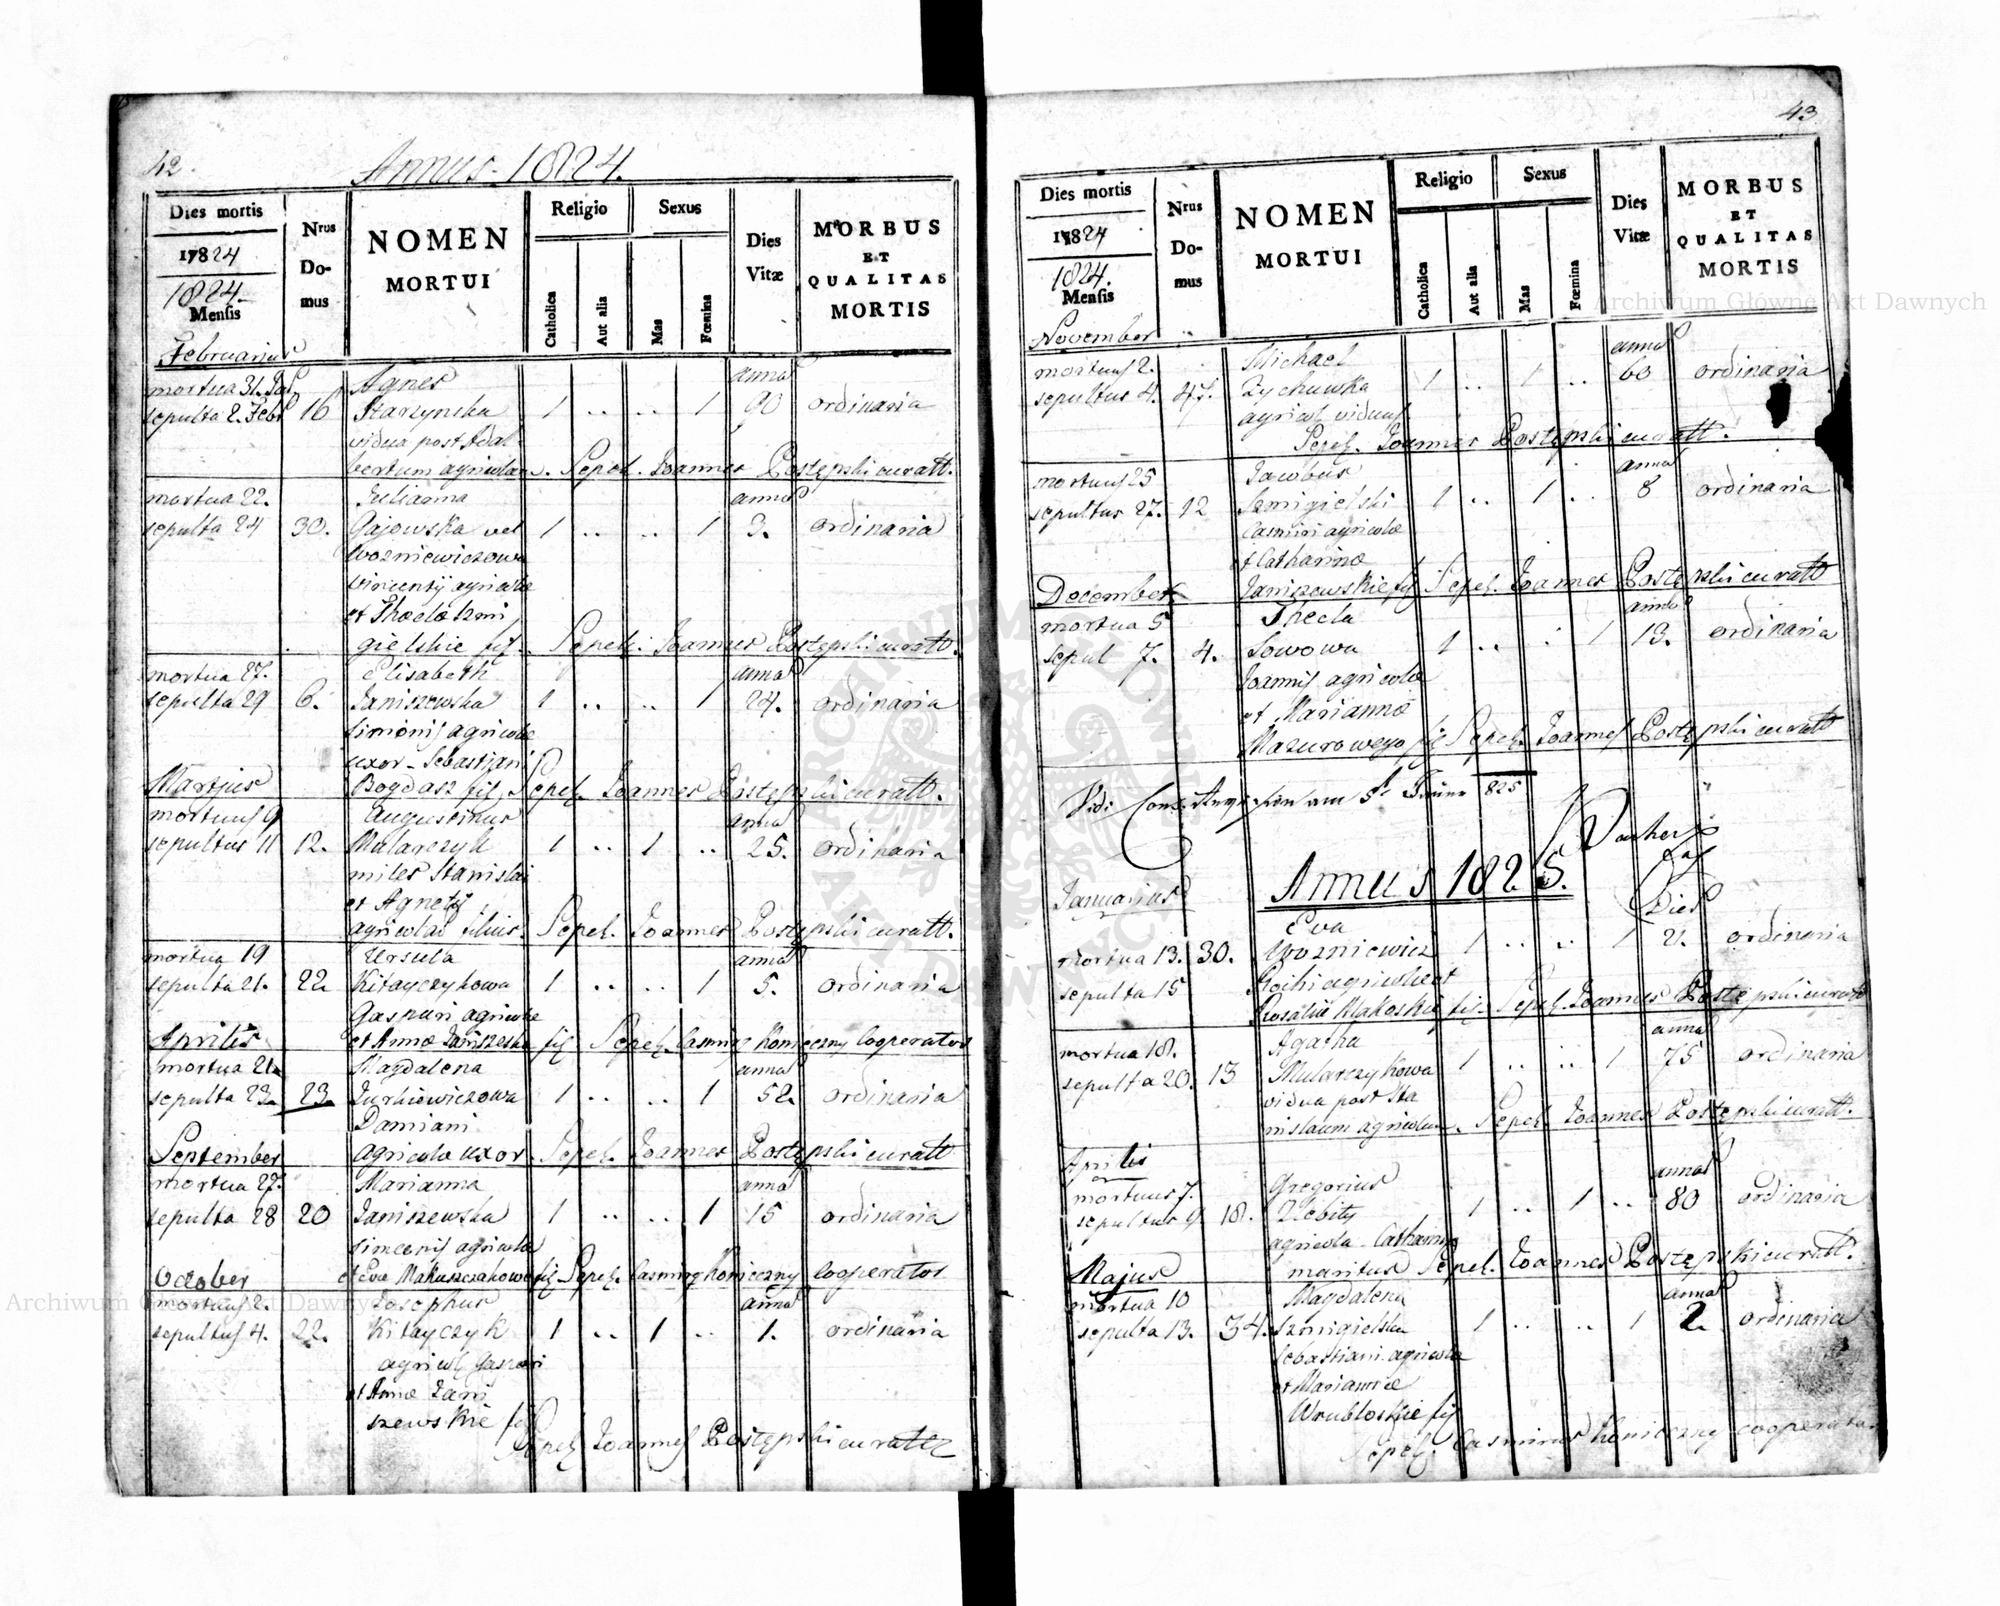 42.
Annus 1824.
Dies mortis
Nrus Domus
NOMEN MORTUI
Religio
Sexus
Dies Vitæ
MORBUS ET QUALITAS MORTIS
17824
1824.
Mensis
Catholica
Aut alia
Mas
Fœmina
Februarius
mortua 31. Jan. Agnes anna
sepulta 2. Febr 16 Starzynska 1 .. .. 1 90 ordinaria
vidua post Adal
bertum agricolam. Sepel. Joannes Postępski curatt.
mortua 22. Julianna anna
sepulta 24 30. Gajowska vel 1 .. .. 1 3. ordinaria
Wozniewiczowa
Vincentij agricolæ
et Theclæ Szmi
gielskie fil. Sepel. Joannes Postępski curatt.
mortua 27. Elisabeth anna
sepulta 29 6. Janiszewska 1 .. .. 1 24. ordinaria
Simonis agricolæ
uxor Sebastiani
Martjus Bogdasz fil. Sepel. Joannes Postępski curatt.
mortuus 9 Augustinus anna
sepultus 11 12. Mularczyk 1 .. 1 .. 25. ordinaria
miles Stanislai
et Agnetis
agricolar filius. Sepel. Joannes Postępski curatt.
mortua 19 Ursula anna
sepulta 21. 22 Kitayczykowa 1 .. .. 1 5. ordinaria
Gaspari agricolæ
Aprilis et Annæ Janiszeska fil Sepel. Casmir Konieczny Cooperator
mortua 21. Magdalena anna
sepulta 23. 23. Jurkiewiczowa 1 .. .. 1 52. ordinaria
Damiani
September agricolæ uxor. Sepel. Joannes Postępski curatt
mortua 27. Marianna anna
sepulta 28 20 Janiszewska 1 .. .. 1 15 ordinaria
Simeonis agricolæ
October et Evæ Makuszakowe fil Sepel. Casmir Konieczny Cooperator
mortuus 2. Josephus anna
sepultus 4. 22. Kitayczyk 1 .. 1 .. 1. ordinaria
agricol Gaspari
et Annæ Jani
szewskie fil
Sepel Joannes Postępski curatt
43
Dies mortis
Nrus Domus
NOMEN MORTUI
Religio
Sexus
Dies Vitæ
MORBUS ET QUALITAS MORTIS
17824
1824.
Mensis
Catholica
Aut alia
Mas
Fœmina
November
mortuus 2. Michael anna
sepultus 4. 47. Zychowska 1 .. 1 .. 60 ordinaria
agricol viduus
Sepel. Joannes Postępski curatt.
mortuus 25 Jacobus anna
sepultus 27. 12 Szmigielski 1 .. 1 .. 8 ordinaria
Casmiri agricolæ
et Catharinæ
December Janiszewskie fil Sepel. Joannes Postępski curatt
mortua 5 Thecla anna
sepul 7. 4. Sowowa 1 .. . 1 13. ordinaria
Joannis agricolæ
et Mariannæ
Mazurowego fil Sepel. Joannes Postępski curatt
Vidi am 5 825
Annus 1825.
Januarius Dies
Eva
mortua 13. 30. Wozniewicz 1 .. .. 1 21. ordinaria
sepulta 15 Rochi agricolæ et
Rosaliæ Makoskie fil. Sepel. Joannes Postępski curatt
mortua 18. Agatha anna
sepulta 20. 13 Mularczykowa 1 .. .. 1 75 ordinaria
vidua post Sta
nislaum agricolam. Sepel. Joannes Postępski curatt.
Aprilis
mortuus 7. Gregorius anna
sepultus 9. 18. Zlebity 1 .. 1 .. 80 ordinaria
agricola Catharinæ
Majus maritus Sepel. Joannes Postępski curatt.
mortua 10 Magdalena anna
sepulta 13. 34. Szmigielska 1 .. .. 1 2. ordinaria
Sebastiani agricolæ
et Mariannæ
Wrubloskie fil
Sepel. Casmirus Konieczny cooperator
Archiwum Główne Akt Dawnych
Archiwum Główne Akt Dawnych
ARCHIWUM GŁÓWNE AKT DAWNYCH